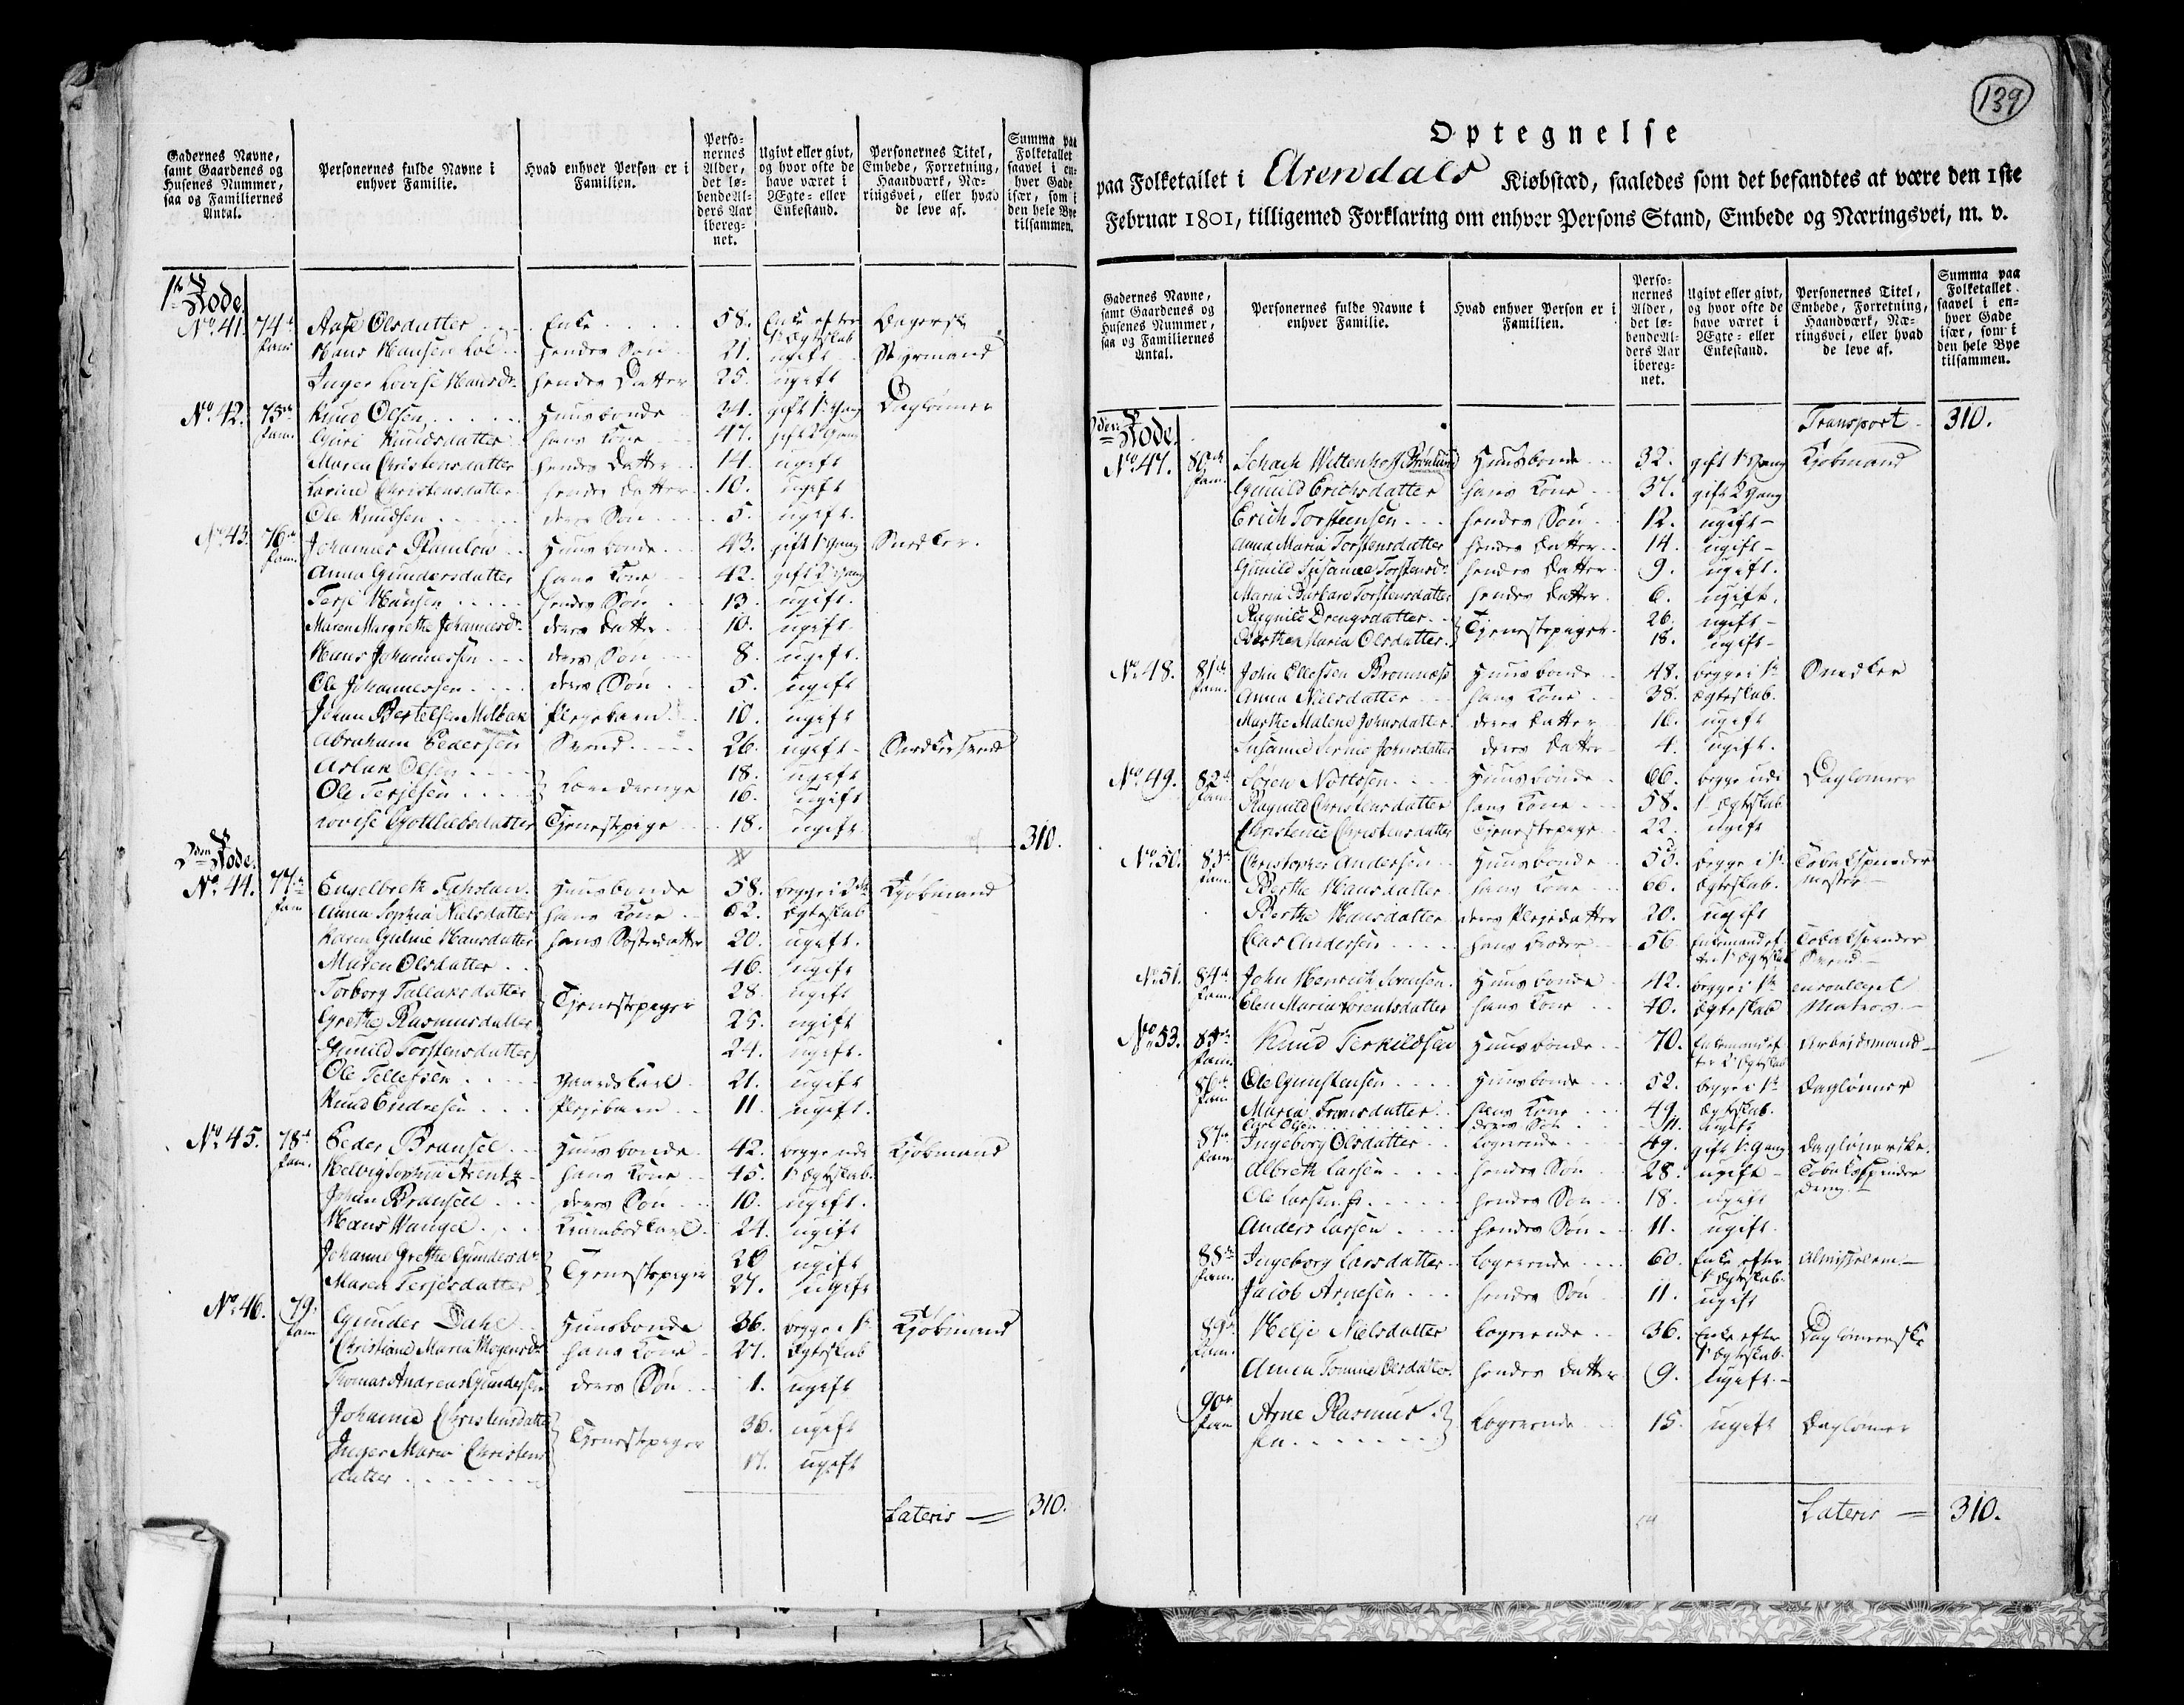 Gadernes Navne, samt Gaardenes og Husenes Nummer, saa og Familiernes Antal.
Personernes fulde Navne i enhver Familie.
Hvad enhver Person er i Familien.
Personernes Alder, det løbende Alders Aar iberegnet.
Ugivt eller givt, og hvor ofte de have været i Ægte- eller Enkestand.
Personernes Titel, Embede, Forretning, Haandværk, Næringsvei, eller hvad de leve af.
Summa paa Folketallet saavel i enhver Gade især, som i den hele Bye tilsammen.
1ste Rode
No. 41. 74de Fam. Aase Olsdatter Enke 58. Enke efter 1ste Ægteskab
Hans Hansen Loe hendes Søn 21. ugift Styrmand
Inger Lovise Hansdr. hendes Datter 25. ugift
No. 42. 75de Fam. Knud Olsen Huusbonde 34. gift 1ste Gang Daglønner
Guri Knudsdatter hans Kone 47. gift 2 Gang
Maren Christensdatter hendes Datter 14. ugift
Karine Christensdatter hendes Datter 10. ugift
Ole Knudsen deres Søn 5. ugift.
No. 43. 76de Fam. Johannes Ramlow Huusbonde 43. gift 1ste Gang Snedker.
Anna Gundersdatter hans Kone 42. gift 2 Gang
Terje Hansen hendes Søn 13. ugift.
Maren Margrethe Johannesdr. deres Datter 10. ugift
Hans Johannessen deres Søn 8. ugift.
Ole Johannessen deres Søn 5. ugift
Johan Bertelsen Plejebarn 10. ugift
Abraham Pedersen Svend 26. ugift Snedkersvend
Aslak Olsen 18. ugift
Ole Terjesen Læredrenge 16. ugift
Lovise Gottliebsdatter Tjenestepige 18. ugift
310.
2den Rode
No. 44. 77de Fam. Engelbreth Huusbonde 58. begge i 2det Kjøbmand
Anna Sophia Nielsdatter hans Kone 62. Ægteskab
Karen Guline Hansdatter hans Søsterdatter 20. ugift.
Maren Olsdatter 46. ugift
Torborg Tallaksdatter 28. ugift
Tjenestepiger
Grethe Rasmusdatter 25. ugift
Gunild Torstensdatter 24. ugift.
Ole Tellefsen Gaardskarl 21. ugift
Knud Endresen Plejebarn 11. ugift.
No. 45. 78de Fam. Peder Bransel Huusbonde 42. begge udi Kjøbmand
Hedvig Sophia Arentz hans Kone 45. 1ste Ægteskab.
Johan Bransell deres Søn 10. ugift.
Hans Wangel Krambodkarl 24. ugift
Johanne Grethe Gundersdr. 20 ugift
Tjenestepiger
Maren Terjesdatter 27. ugift
No. 46. 79. Fam. Gunder Dahl Huusbonde 36. begge i 1ste Kjøbmand
Christiane Maria Mogensdr. hans Kone 27. Ægteskab
Thomas Andreas Gundersen deres Søn 1. ugift
Johanne Christensdatter 36. ugift
Tjenestepiger
Inger Marie Christens
datter 17. ugift
Lateris = 310.
139
Optegnelse
paa Folketallet i Arendals Kiøbstæd, saaledes som det befandtes at være den 1ste
Februar 1801, tilligemed Forklaring om enhver Persons Stand, Embede og Næringsvei, m. v.
Gadernes Navne, samt Gaardenes og Husenes Nummer, saa og Familiernes Antal.
Personernes fulde Navne i enhver Familie.
Hvad enhver Person er i Familien.
Personernes Alder, det løbende Alders Aar iberegnet.
Ugivt eller givt, og hvor ofte de have været i Ægte- eller Enkestand.
Personernes Titel, Embede, Forretning, Haandværk, Næringsvei, eller hvad de leve af.
Summa paa Folketallet saavel i enhver Gade især, som i den hele Bye tilsammen.
2den Rode
Transport 310.
No. 47. 80de Fam. Schach Wittenhoff Brønlund Huusbonde 32. gift 1ste Gang Kjøbmand
Gunild Erichsdatter hans Kone 37. gift 2 Gang
Erich Torstensen hendes Søn 12. ugift
Anna Maria Torstensdatter hendes Datter 14. ugift
Gunild Susanne Torstensdr. hendes Datter 9. ugift.
Maria Barbara Torstensdatter hendes Datter 6. ugift.
Ragnild Drengsdatter 26. ugift
Tjenestepiger
Berthe Maria Olsdatter 18. ugift
No. 48. 81de Fam. John Ellefsen Bromnæss Huusbonde 48. begge i 1ste Snedker
Anna Nielsdatter hans Kone 38. Ægteskab.
Marthe Malene Johnsdatter deres Datter 16. ugift
Susanne Johnsdatter deres Datter 4. ugift.
No. 49. 82de Fam. Søren Nottosen Huusbonde 66. begge udi Dagløner
Ragnild Christensdatter hans Kone 58. 1ste Ægteskab
Christence Christensdatter Tjenestepige 22. ugift
No. 50. 83de Fam. Christopher Andersen Huusbonde 53. begge i 1ste Tobakspinder
Berthe Hansdatter hans Kone 66. Ægteskab. mester
Berthe Hansdatter deres Plejedatter 20. ugift
Lars Andersen hans Broder 56 Enkemand efter 1ste Ægteskab Tobakspinder Svend
No. 51. 84de Fam. John Henrich Sørensen Huusbonde 42. begge i 1ste enrouleret
Elen Maria Lorentsdatter hans Kone 40. Ægteskab Matros
No. 53. 85de Fam. Knud Terkildsen Huusbonde 70. Enkemand efter 2det Ægteskab Arbeidsmand
86de Fam. Ole Gunstensen Huusbonde 52. begge i 1ste Dagløner
Maria Tronsdatter hans Kone 49. Ægteskab.
Carl Olsen deres Søn ugift
87de Fam. Ingeborg Olsdatter Logerende 49. gift 1ste Gang Daglønerske.
Albreth Larsen hendes Søn 28. ugift Tobakspinder
Ole Larsen hendes Søn 18. ugift dreng.
Anders Larsen hendes Søn 11. ugift.
88de Fam. Ingeborg Larsdatter Logerende 60. Enke efter 1ste Ægteskab. Almisselem
Jacob Arnesen hendes Søn 11. ugift
89de Fam. Helje Nielsdatter Logerende 36. Enke efter 1ste Ægteskab. Daglønerske
Anne Tomine Olsdatter hendes Datter 9. ugift.
90de Fam. Arne Rasmus
sen Logerende 15. ugift Dagløner
Lateris = 310.